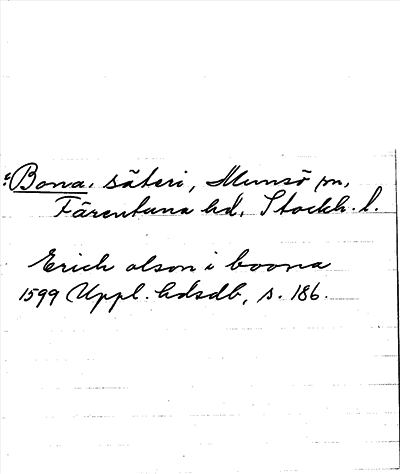 Bona, säteri, Munsö sn,
Färentuna hd, Stockh. l.
Erich olson i boona
1599 Uppl. hdsdb, s. 186.